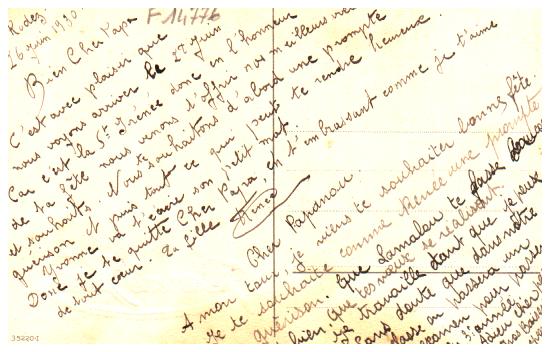 F 14776
Rodez
26 juin 1930.
Bien Cher Papa
C'est avec plaisir que
nous voyons arriver le 28 juin
Car c'est la St Irénée donc en l'honneur
de ta fête nous venons d'offrir nos meilleurs
et souhaits. Nous te souhaitons d'abord une prompte
guérison et puis tout ce qui peut te rendre heureux.
Yvonne va t'écrire son petit mot.
Donc je te quitte Cher Papa, en t'embrassant comme je t'aime
de tout cœur. Ta fille
Renée
Cher Papanou.
A mon tour, je viens te souhaiter bonne fête.
Je te souhaite comme Renée une prompte
guérison. Que Lamalou te fasse
bien, que tes vœux se réalisent.
je travaille tant que je peux
Sans doute que dans notre
classe on passera un
examen pour passer
35220-1